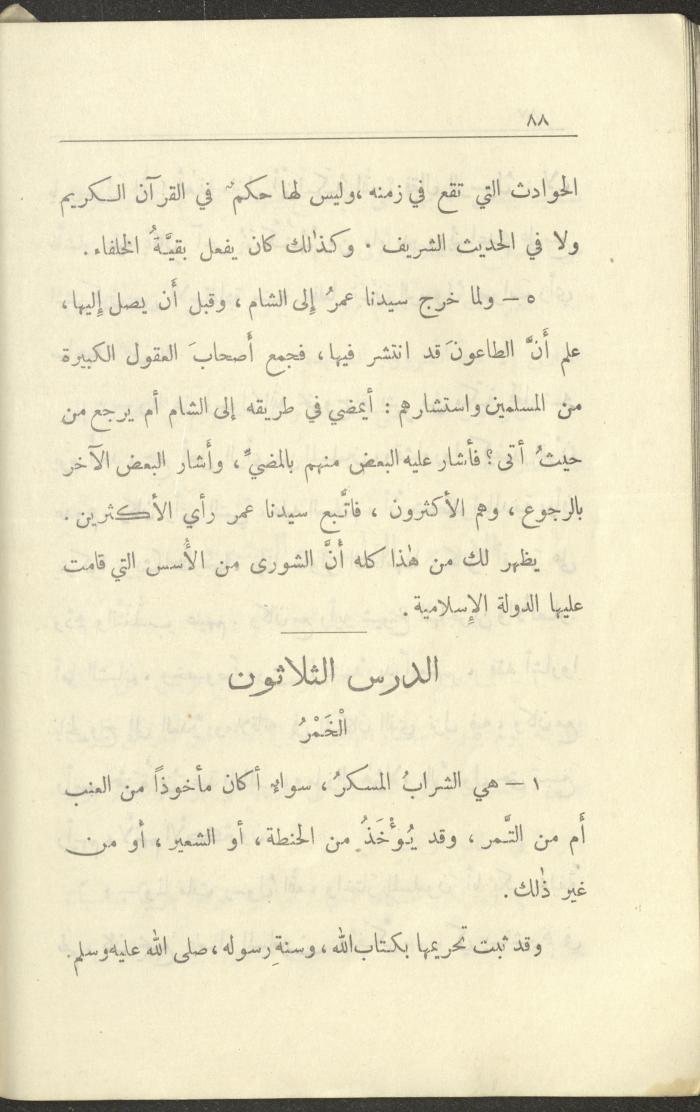 ٨٨
الحوادث التي تقع في زمنه ،وليس لها حكمٌ في القرآن الكريم
ولا في الحديث الشريف . وكذٰلك كان يفعل بقيَّةُ الخلفاء .
٥ – ولما خرج سيدنا عمرُ إِلى الشام ، وقبل أَن يصل إِليها،
علم أَنَّ الطاعونَ قد انتشر فيها، فجمع أَصحابَ العقول الكبيرة
من المسلمين واستشارهم : أيمضي في طريقه إلى الشام أم يرجع من
حيثُ أتى ؟ فأشار عليه البعض منهم بالمضيِّ، وأشار البعض الآخر
بالرجوع ، وهم الأكثرون ، فاتَّبع سيدنا عمر رأي الأكثرين .
يظهر لك من هٰذا كله أنَّ الشورى من الأُسس التي قامت
عليها الدولة الإِسلامية .
الدرس الثلاثون
الْخَمْرُ
١ – هي الشرابُ المسكرُ ، سواءٌ أكان مأخوذاً من العنب
أَم من التَّمر ، وقد يُؤْخَذُ من الحنطة، أو الشعير ، أو من
غير ذٰلك .
وقد ثبت تحريمها بكتاب الله ، وسنةِ رسوله ، صلى الله عليه وسلم .